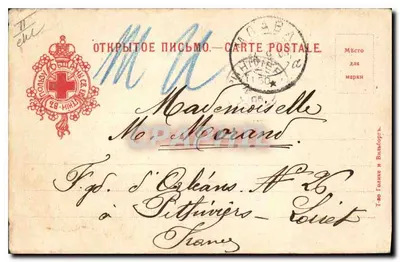 ОТКРЫТОЕ ПИСЬМО.—CARTE POSTALE.
Мѣсто
для
марки
Mademoiselle
M. Morand
Fg. d'Orléans. No 26
à Pithiviers -
Loiret
France
Т-во Голике и Вильборгъ.